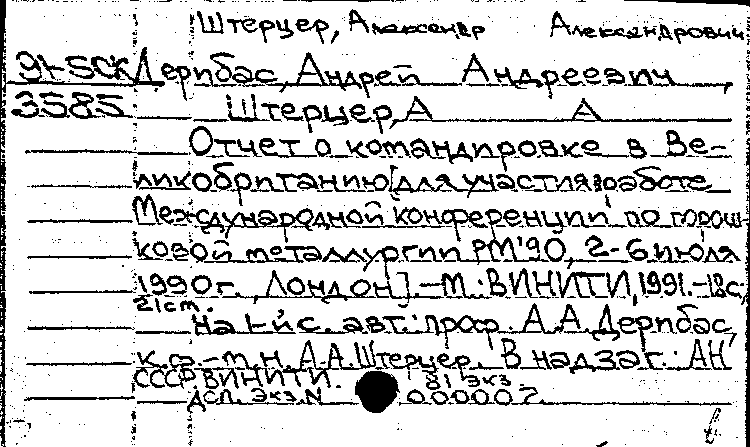 Штерцер, Александр Александрович
91-5СК Дерибас, Андрей Андреевич,
3585 Штерцер, А А
Отчет о командировке в Ве-
ликобританию [для участия в работе
Международной конференции по порош-
ковой металлургии РМ'90, 2-6 июля
1990г., Лондон].-М.:ВИНИТИ, 1991.-18с,
21см.
На 1-й с. авт.: проф. А.А. Дерибас,
к.ф.-т.н. А.А. Штерцер. В надзаг.: АН
СССР, ВИНИТИ. 81 экз.
ДСП. Экз. N 000007.